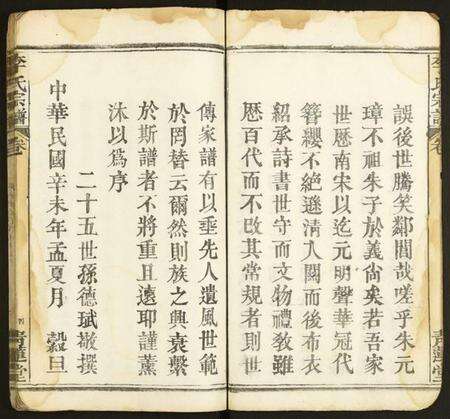 誤後世騰笑鄰閭哉嗟乎朱元
璋不祖朱子於義尙矣若吾家
世歷南宋以迄元明聲華冠代
簪纓不絕遜清入關而後布衣
紹承詩書世守而文物禮敎雖
歷百代而不改其常規者則世
傳家譜有以垂先人遺風世範
於罔替云爾然則族之興衰繫
於斯譜者不將重且遠耶謹薰
沐以爲序
二十五世孫德珷敬撰
中華民國辛未年孟夏月 穀旦
李氏宗譜 卷
靑蓮堂